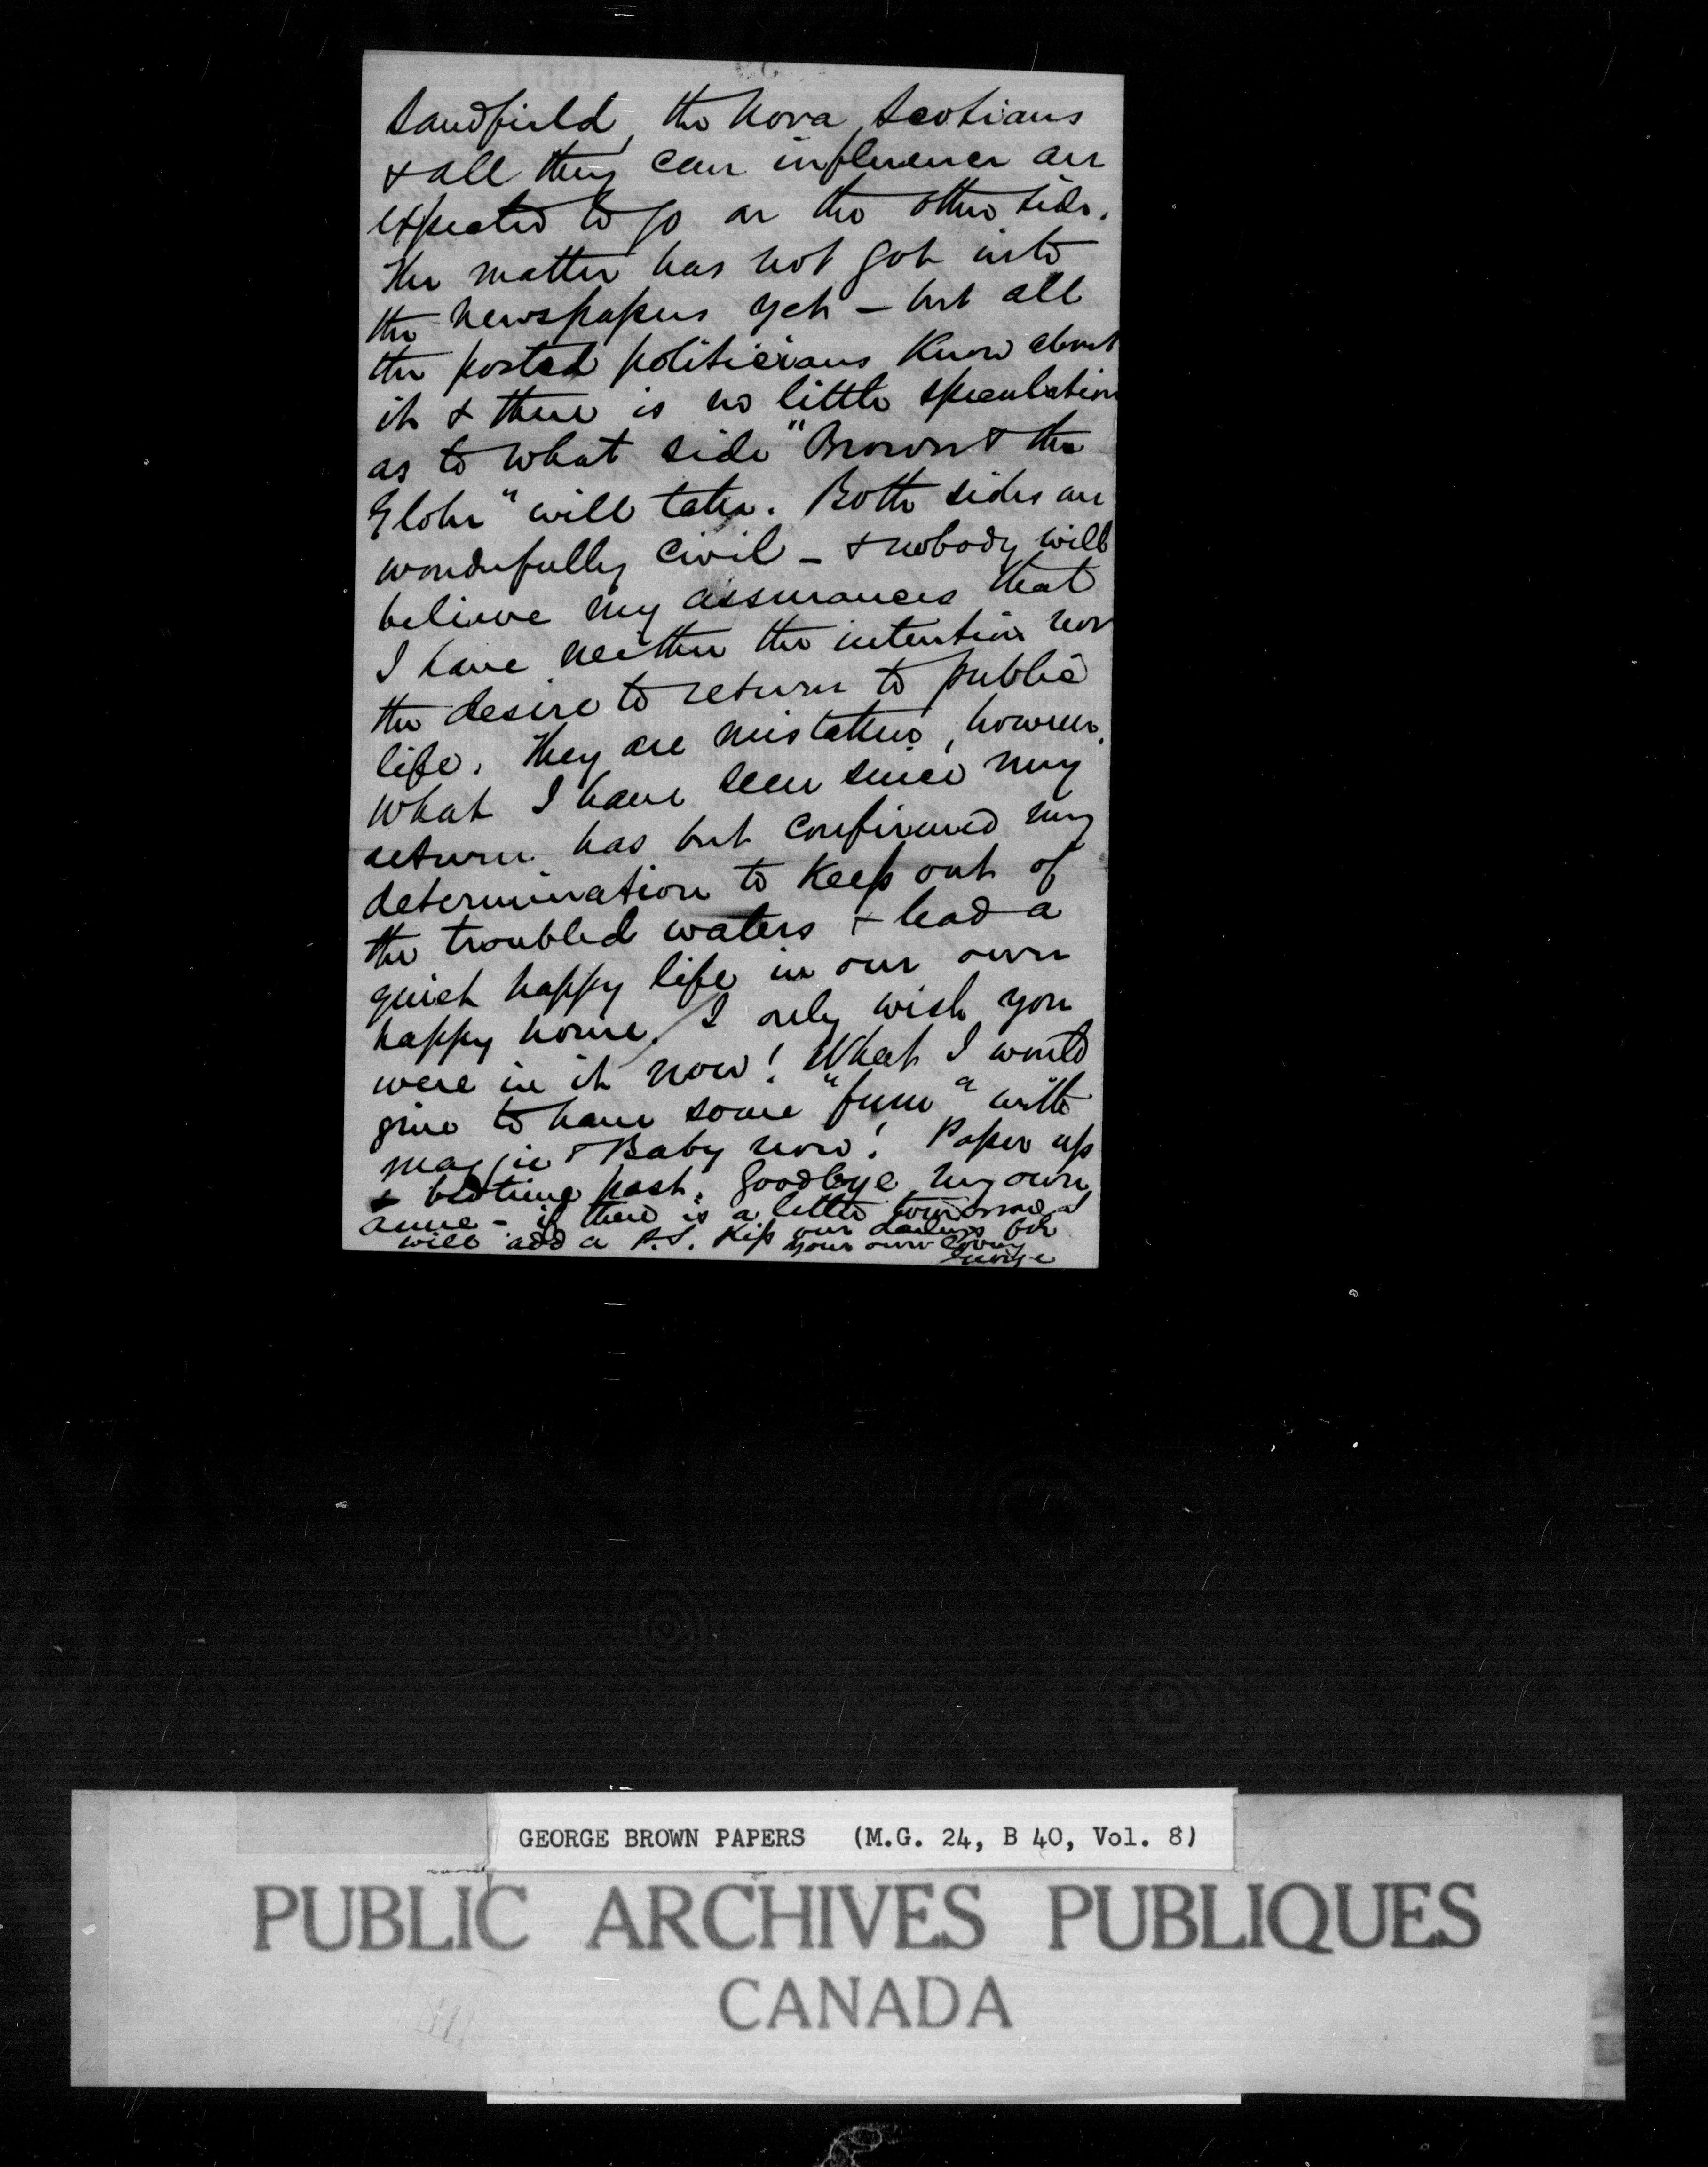 Sandfield, the Nova Scotians
& all they can influence are
expected to go on the other side.
The matter has not got into
the newspapers yet – but all
the posted politicians know about
it & there is no little speculation
as to what side "Brown & the
Globe" will take. Both sides are
wonderfully civil – & nobody will
believe my assurances that
I have neither the intention nor
the desire to return to public
life. They are mistaken, however.
What I have seen since my
return has but confirmed my
determination to keep out of
the troubled waters & lead a
quiet happy life in our own
happy home. / I only wish you
were in it now! What I would
give to have some "fun" with
Maggie & Baby now! Paper up
& bedtime past. Goodbye my own
Anne – if there is a letter tomorrow I
will add a P.S. Kiss our darlings for
your own loving
George
GEORGE BROWN PAPERS (M.G. 24, B 40, Vol. 8)
PUBLIC ARCHIVES PUBLIQUES
CANADA